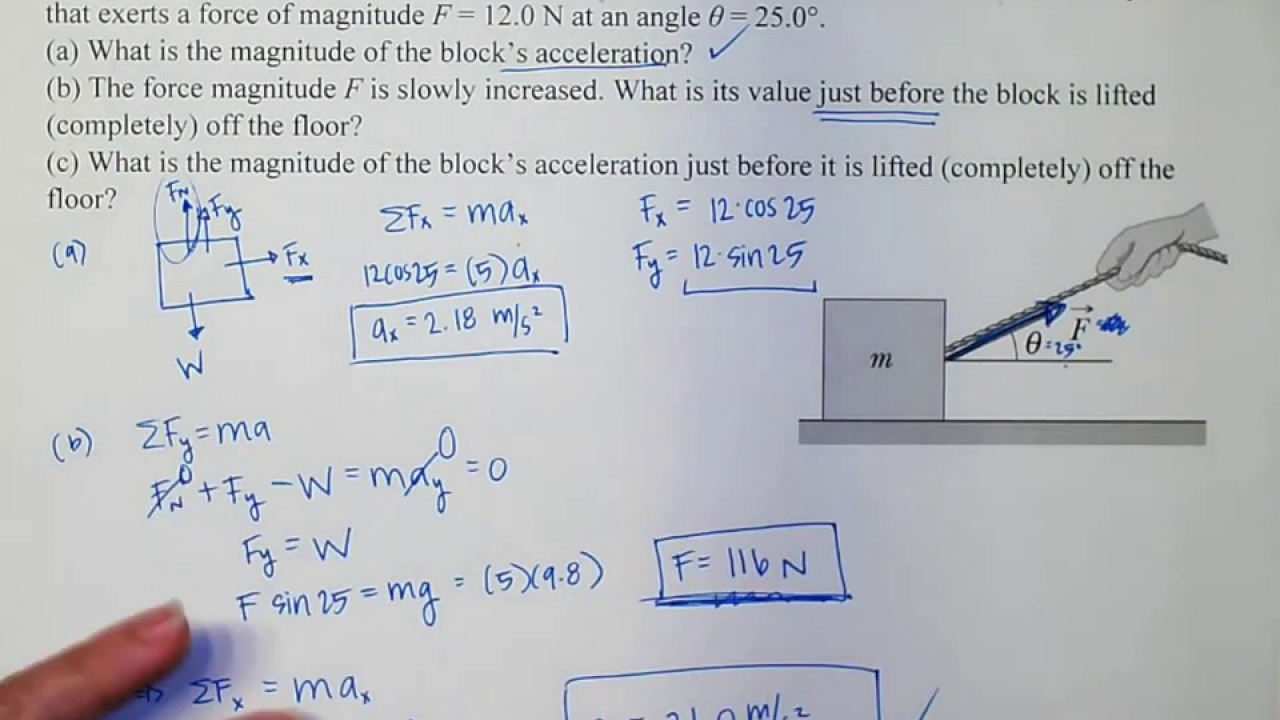 that exerts a force of magnitude F = 12.0 N at an angle θ = 25.0°.
(a) What is the magnitude of the block's acceleration? ✓
(b) The force magnitude F is slowly increased. What is its value just before the block is lifted
(completely) off the floor?
(c) What is the magnitude of the block's acceleration just before it is lifted (completely) off the
floor?
(a)
F_N
F_y
F_x
W
ΣF_x = ma_x
12cos25 = (5)a_x
a_x = 2.18 m/s²
F_x = 12·cos 25
F_y = 12·sin25
m
F⃗
θ=25°
(b)
ΣF_y = ma
F_N⁰ + F_y - W = ma_y⁰ = 0
F_y = W
F sin 25 = mg = (5)(9.8)
F = 116 N
ΣF_x = ma_x